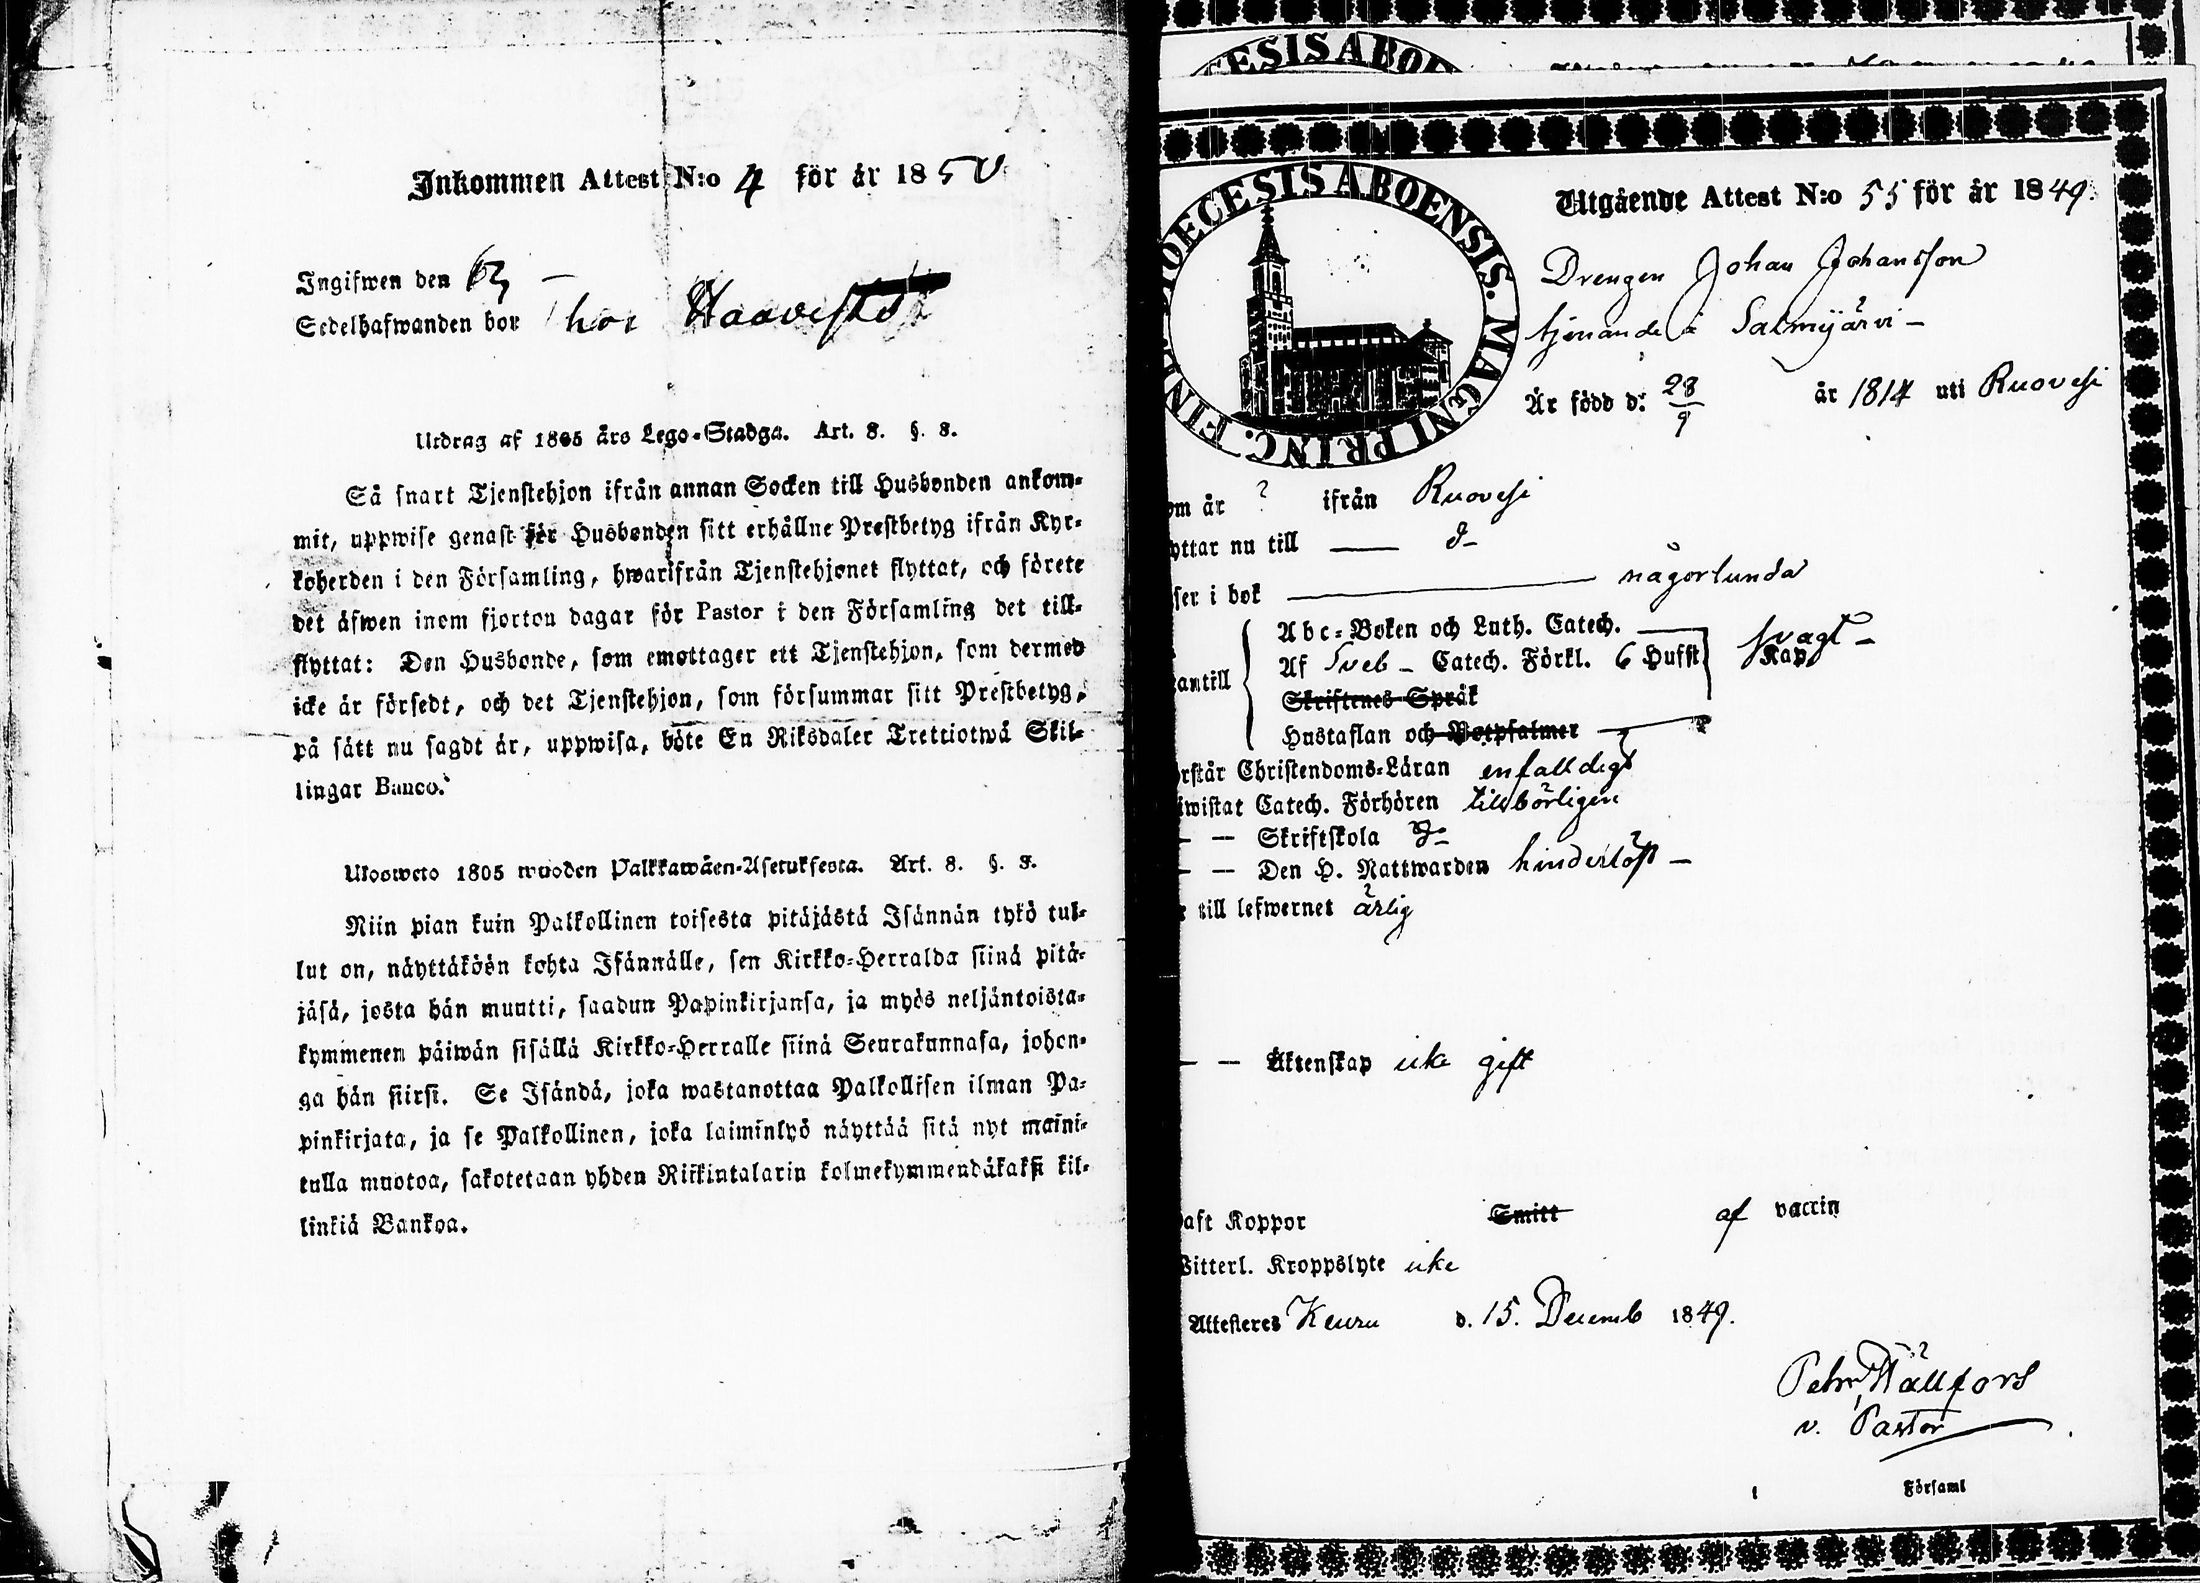 Inkommen Attest N:o 4 för år 1850
Ingifwen den
Sedelhafwanden bor hos Haavisto
Utdrag af 1805 års Lego-Stadga. Art. 8. §. 8.
Så snart Tjenstehjon ifrån annan Socken till Husbonden ankom-
mit, uppwise genast för Husbonden sitt erhållne Prestbetyg ifrån Kyr-
koherden i den Församling, hwarifrån Tjenstehjonet flyttat, och förete
det äfwen inom fjorton dagar för Pastor i den Församling det till-
flyttat: Den Husbonde, som emottager ett Tjenstehjon, som dermed
icke är försedt, och det Tjenstehjon, som försummar sitt Prestbetyg,
på sätt nu sagdt är, uppwisa, böte En Riksdaler Trettiotwå Skil-
lingar Banco.
Ulosweto 1805 wuoden Palkkawäen-Asetuksesta. Art. 8. §. 8.
Niin pian kuin Palkollinen toisesta pitäjästä Isännän tykö tul-
lut on, näyttäköön kohta Isännälle, sen Kirkko-Herralda siinä pitä-
jäsä, josta hän muutti, saadun Papinkirjansa, ja myös neljäntoista-
kymmenen päiwän sisällä Kirkko-Herralle siinä Seurakunnasa, johon-
ga hän siirsi. Se Isändä, joka wastanottaa Palkollisen ilman Pa-
pinkirjata, ja se Palkollinen, joka laiminlyö näyttää sitä nyt maini-
tulla muotoa, sakotetaan yhden Riikintalarin kolmekymmendäkaksi kil-
linkiä Bankoa.
CESIS ABOE
DIOECESIS ABOENSIS. MAGNI PRINC. FINL
Utgående Attest N:o 55 för år 1849.
Drengen Johan Johansson
tjenande i Salmijärvi –
Är född d. 28/9 år 1814 uti Ruovesi
om är ? ifrån Ruovesi
yttar nu till —— d–
ser i bok —— någorlunda
antill
Abc-Boken och Luth. Catech. ——
Af Sveb – Catech. Förkl. 6 Hufst Kap
svagt –
Skriftenes Språk
Hustaflan och Botpsalmer
rstår Christendoms-Läran enfalldigt
iwistat Catech. Förhören tillbörligen
– — Skriftskola d–
– — Den H. Nattwarden hinderlöst –
till lefwernet ärlig
– — Äktenskap icke gift
aft Koppor Smitt af vaccin
Witterl. Kroppslyte icke
Attesteres Keuru d. 15. Decemb 1849.
Petr Hällfors
v. Pastor
i Församl